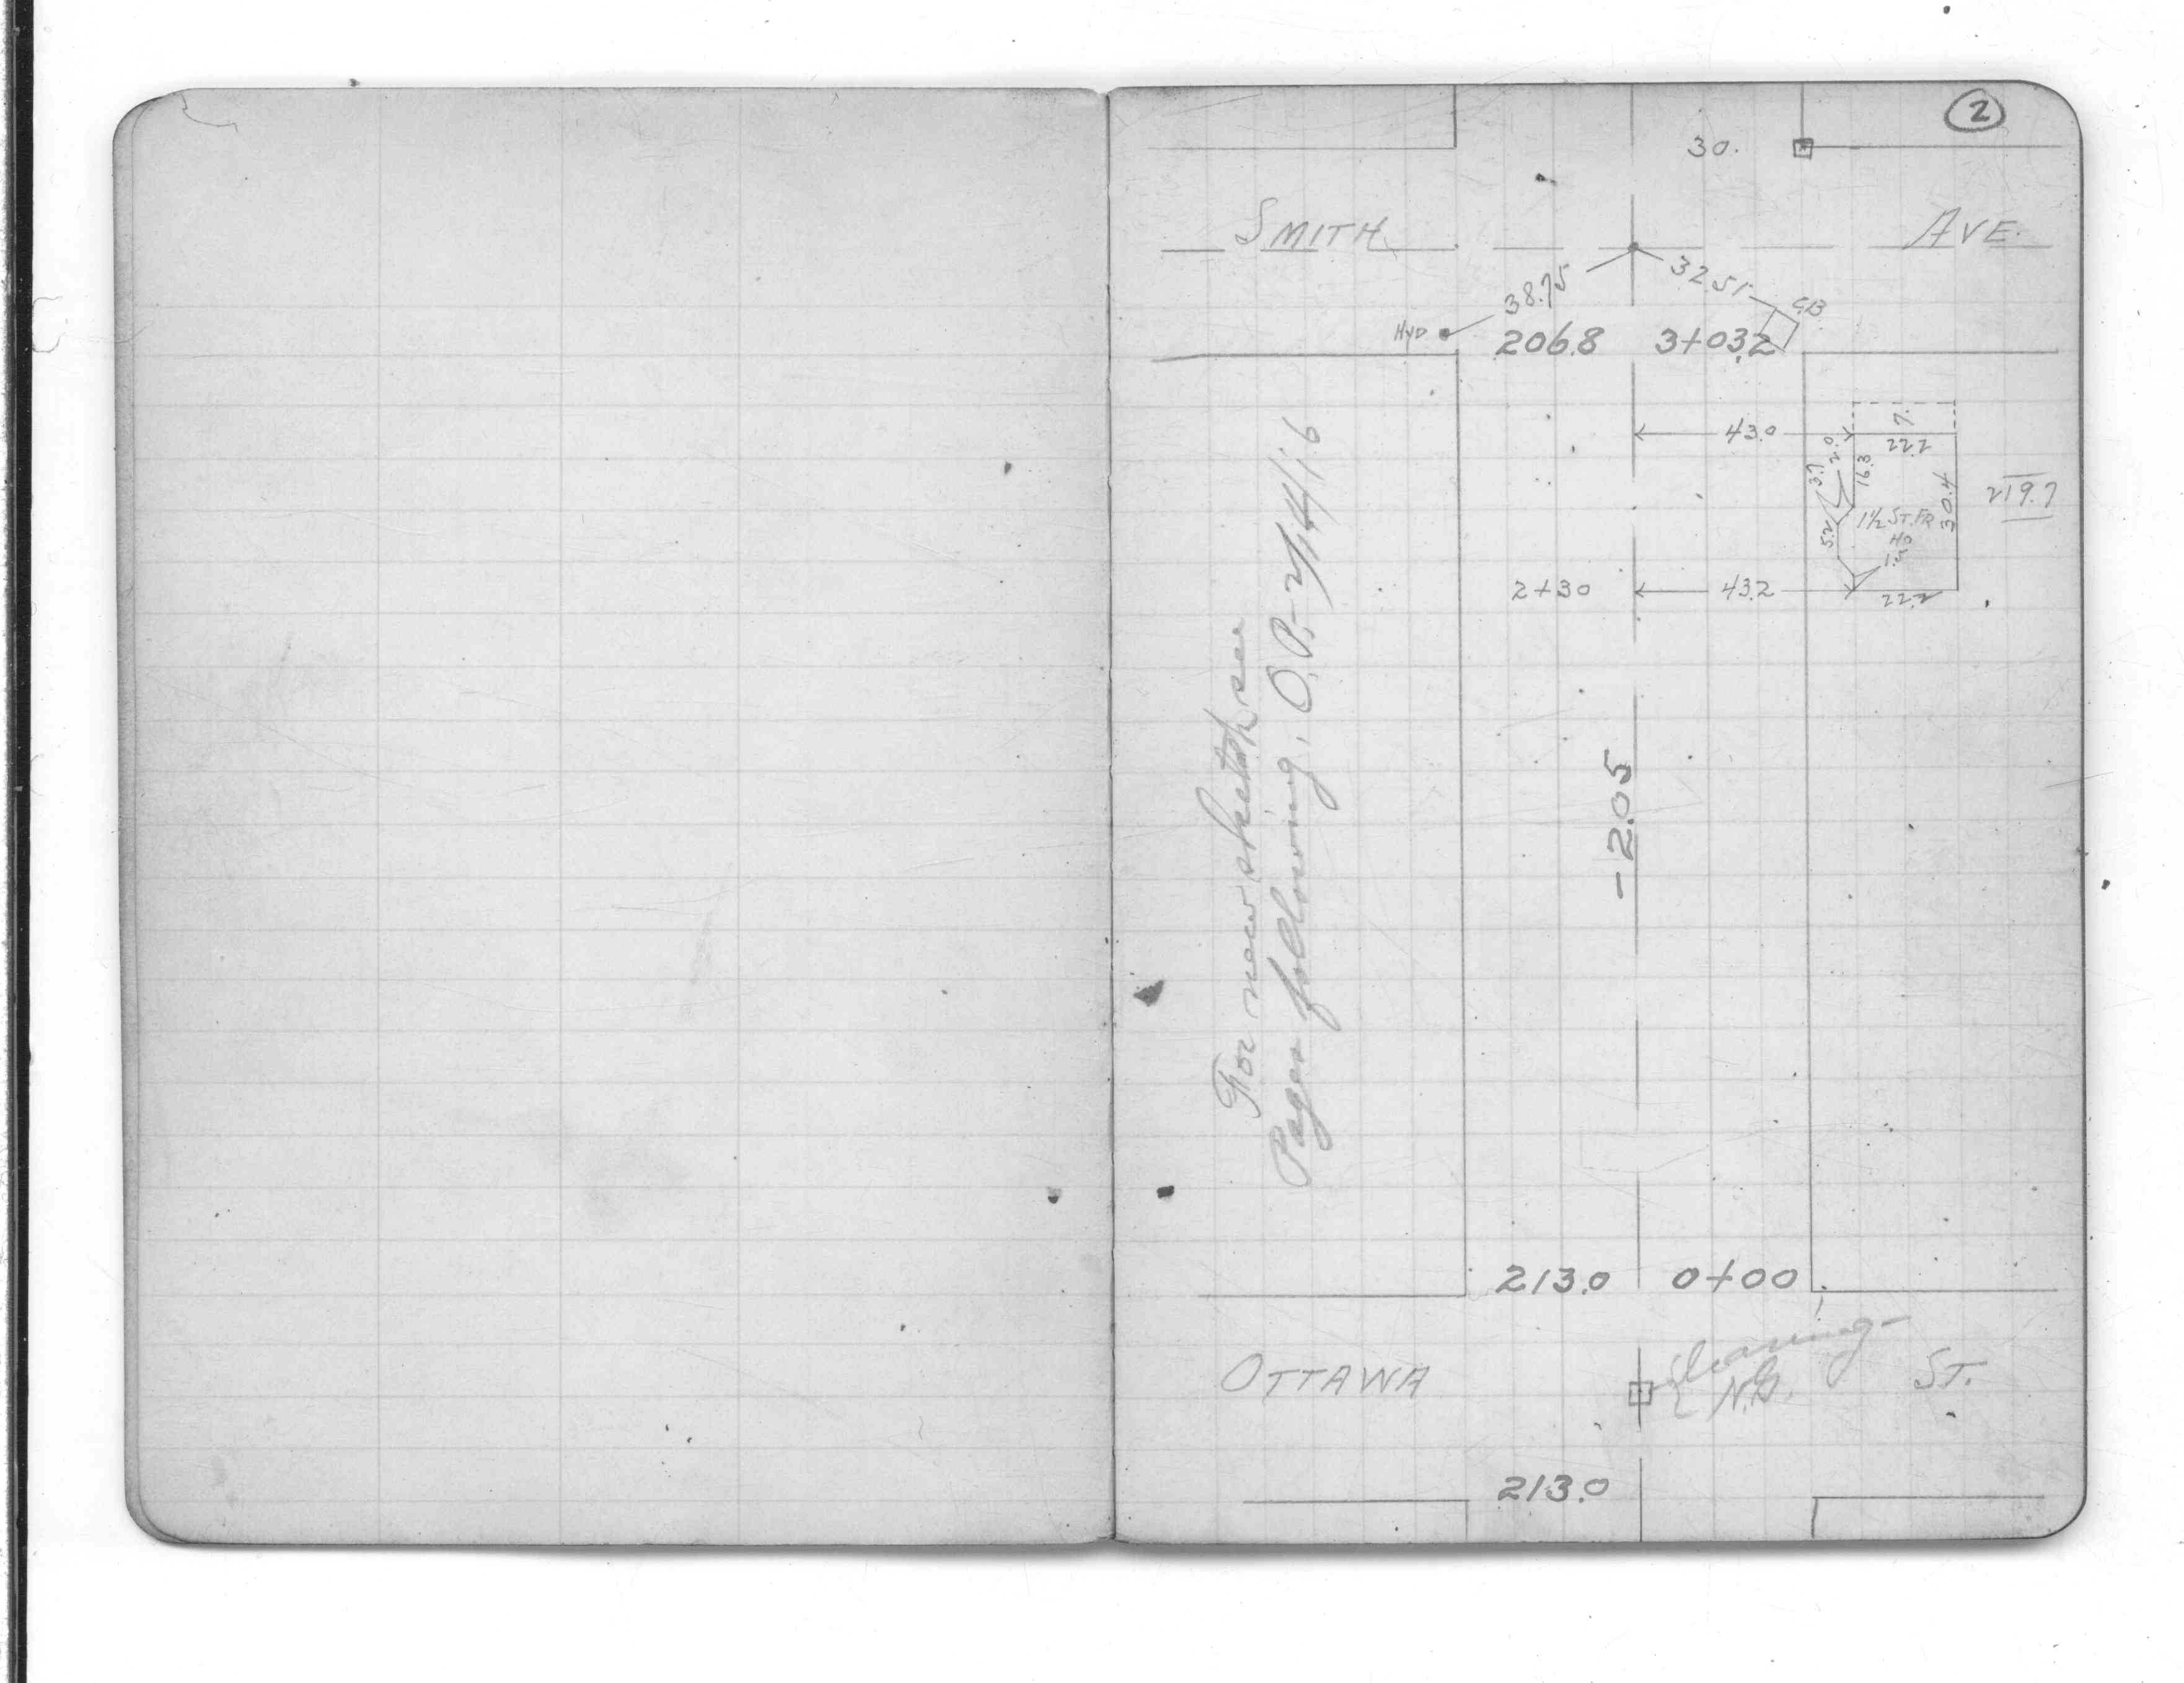 2
30.
SMITH AVE.
38.75 32.51 CB
HYD
206.8 3+03.2
43.0 7.
22.2
2.0
3.7
16.3
5.2
1½ ST. FR
HO
30.4
219.7
1.5
2+30 43.2 22.2
-2.05
For new sketch see
Pages following. O.P.-
213.0 0+00
OTTAWA N.G. ST.
213.0